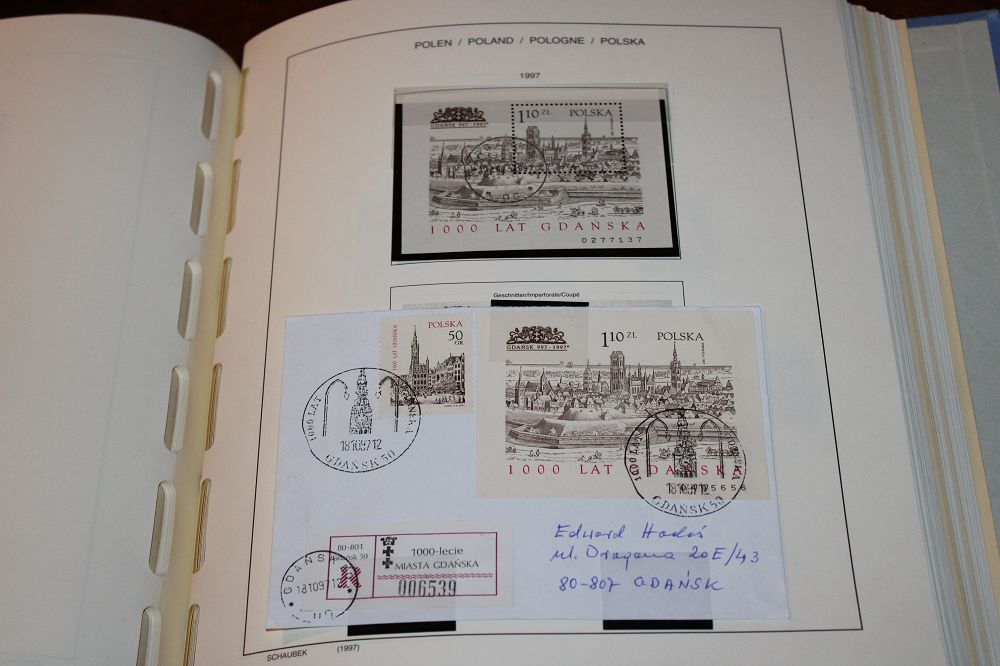 POLEN / POLAND / POLOGNE / POLSKA
1997
GDAŃSK 997-1997
1¹⁰ ZŁ POLSKA
1000 LAT GDAŃSKA
0277137
Geschnitten/Imperforate/Coupé
POLSKA
50
GR
1000 LAT GDAŃSKA
GDAŃSK 997-1997
1¹⁰ ZŁ POLSKA
1000 LAT GDAŃSKA
5656
1000 LAT
18.10.97.12
GDAŃSK 50
1000 LAT
18.10.97.12
GDAŃSK 50
80-801
Gdańsk 50
1000-lecie
MIASTA GDAŃSKA
006539
R
GDAŃSK
181097 12
Edward
ul. Dragana 20E/43
80-807 GDAŃSK
SCHAUBEK (1997)